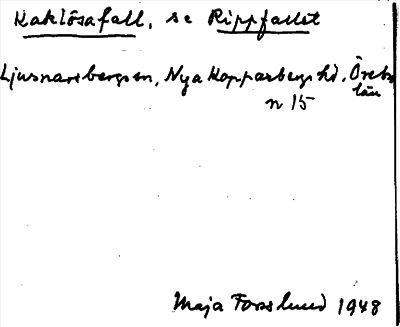 Kaklösafall, se Rippfallet
Ljusnarsbergs sn, Nya Kopparbergs hd, Örebro
län
n 15
Maja Forsslund 1948